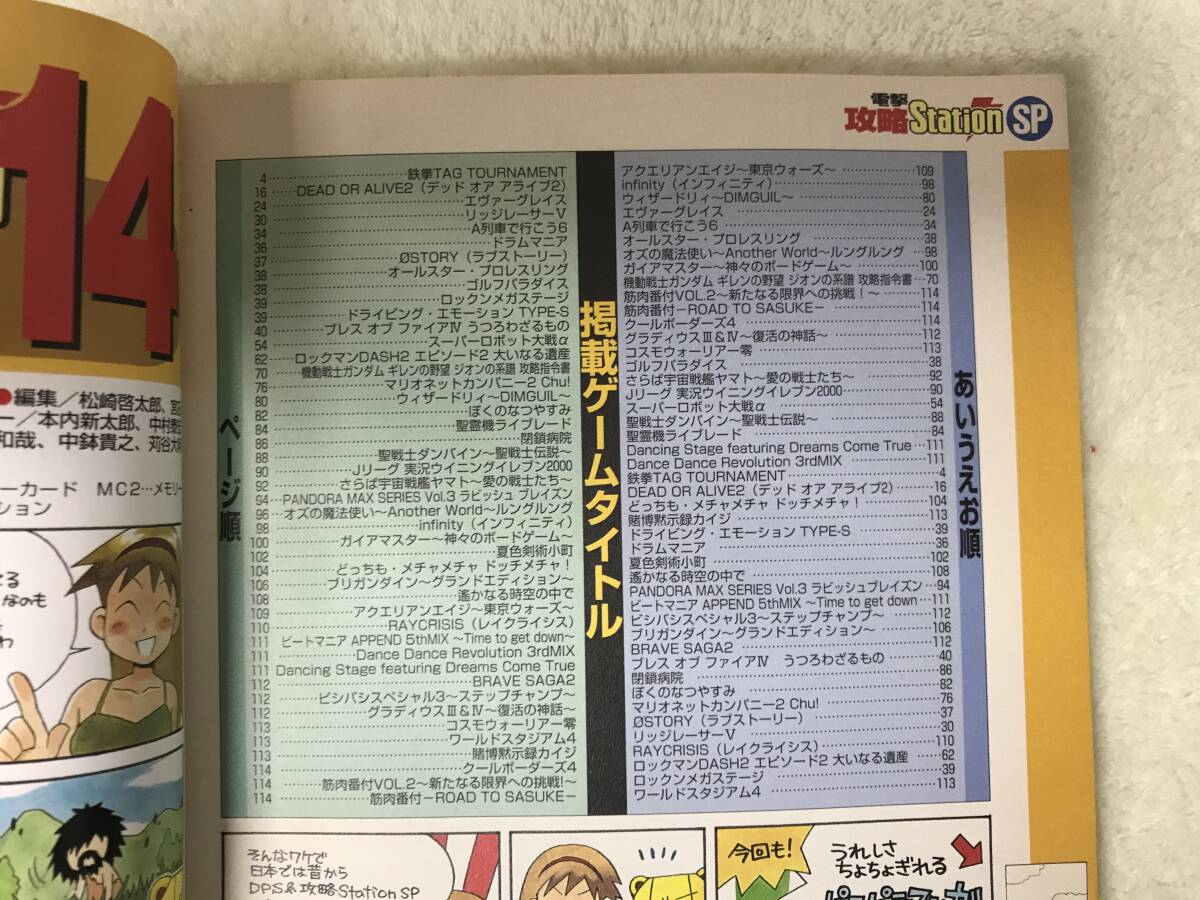 14
●編集／松崎啓太郎、宮
ー／本内新太郎、中村
和哉、中鉢貴之、苅谷大
ーカード MC2…メモリー
ション
電撃
攻略Station SP
ページ順
4 鉄拳TAG TOURNAMENT
16 DEAD OR ALIVE2（デッド オア アライブ2）
24 エヴァーグレイス
30 リッジレーサーV
34 A列車で行こう6
36 ドラムマニア
37 ØSTORY（ラブストーリー）
38 オールスター・プロレスリング
38 ゴルフパラダイス
39 ロックンメガステージ
39 ドライビング・エモーション TYPE-S
40 ブレス オブ ファイアⅣ うつろわざるもの
54 スーパーロボット大戦α
62 ロックマンDASH2 エピソード2 大いなる遺産
70 機動戦士ガンダム ギレンの野望 ジオンの系譜 攻略指令書
76 マリオネットカンパニー2 Chu!
80 ウィザードリィ~DIMGUIL~
82 ぼくのなつやすみ
84 聖霊機ライブレード
86 閉鎖病院
88 聖戦士ダンバイン~聖戦士伝説~
90 Jリーグ 実況ウイニングイレブン2000
92 さらば宇宙戦艦ヤマト~愛の戦士たち~
94 PANDORA MAX SERIES Vol.3 ラビッシュ ブレイズン
96 オズの魔法使い~Another World~ルングルング
98 infinity（インフィニティ）
100 ガイアマスター~神々のボードゲーム~
102 夏色剣術小町
104 どっちも・メチャメチャ ドッチメチャ！
106 ブリガンダイン~グランドエディション~
108 遙かなる時空の中で
109 アクエリアンエイジ~東京ウォーズ~
110 RAYCRISIS（レイクライシス）
111 ビートマニア APPEND 5thMIX ~Time to get down~
111 Dance Dance Revolution 3rdMIX
111 Dancing Stage featuring Dreams Come True
112 BRAVE SAGA2
112 ビシバシスペシャル3~ステップチャンプ~
112 グラディウスⅢ&Ⅳ~復活の神話~
113 コスモウォーリアー零
113 ワールドスタジアム4
113 賭博黙示録カイジ
114 クールボーダーズ4
114 筋肉番付VOL.2~新たなる限界への挑戦!~
114 筋肉番付－ROAD TO SASUKE－
掲載ゲームタイトル
アクエリアンエイジ~東京ウォーズ~ 109
infinity（インフィニティ） 98
ウィザードリィ~DIMGUIL~ 80
エヴァーグレイス 24
A列車で行こう6 34
オールスター・プロレスリング 38
オズの魔法使い~Another World~ルングルング 98
ガイアマスター~神々のボードゲーム~ 100
機動戦士ガンダム ギレンの野望 ジオンの系譜 攻略指令書 70
筋肉番付VOL.2~新たなる限界への挑戦！~ 114
筋肉番付－ROAD TO SASUKE－ 114
クールボーダーズ4 114
グラディウスⅢ&Ⅳ~復活の神話~ 112
コスモウォーリアー零 113
ゴルフパラダイス 38
さらば宇宙戦艦ヤマト~愛の戦士たち~ 92
Jリーグ 実況ウイニングイレブン2000 90
スーパーロボット大戦α 54
聖戦士ダンバイン~聖戦士伝説~ 88
聖霊機ライブレード 84
Dancing Stage featuring Dreams Come True 111
Dance Dance Revolution 3rdMIX 111
鉄拳TAG TOURNAMENT 4
DEAD OR ALIVE2（デッド オア アライブ2） 16
どっちも・メチャメチャ ドッチメチャ！ 104
賭博黙示録カイジ 113
ドライビング・エモーション TYPE-S 39
ドラムマニア 36
夏色剣術小町 102
遙かなる時空の中で 108
PANDORA MAX SERIES Vol.3 ラビッシュブレイズン 94
ビートマニア APPEND 5thMIX ~Time to get down 111
ビシバシスペシャル3~ステップチャンプ~ 112
ブリガンダイン~グランドエディション~ 106
BRAVE SAGA2 112
ブレス オブ ファイアⅣ うつろわざるもの 40
閉鎖病院 86
ぼくのなつやすみ 82
マリオネットカンパニー2 Chu! 76
ØSTORY（ラブストーリー） 37
リッジレーサーV 30
RAYCRISIS（レイクライシス） 110
ロックマンDASH2 エピソード2 大いなる遺産 62
ロックンメガステージ 39
ワールドスタジアム4 113
あいうえお順
てる
なのも
わ
そんなワケで
日本では昔から
DPS&攻略Station SP
今回も！
うれしさ
ちょちょぎれる